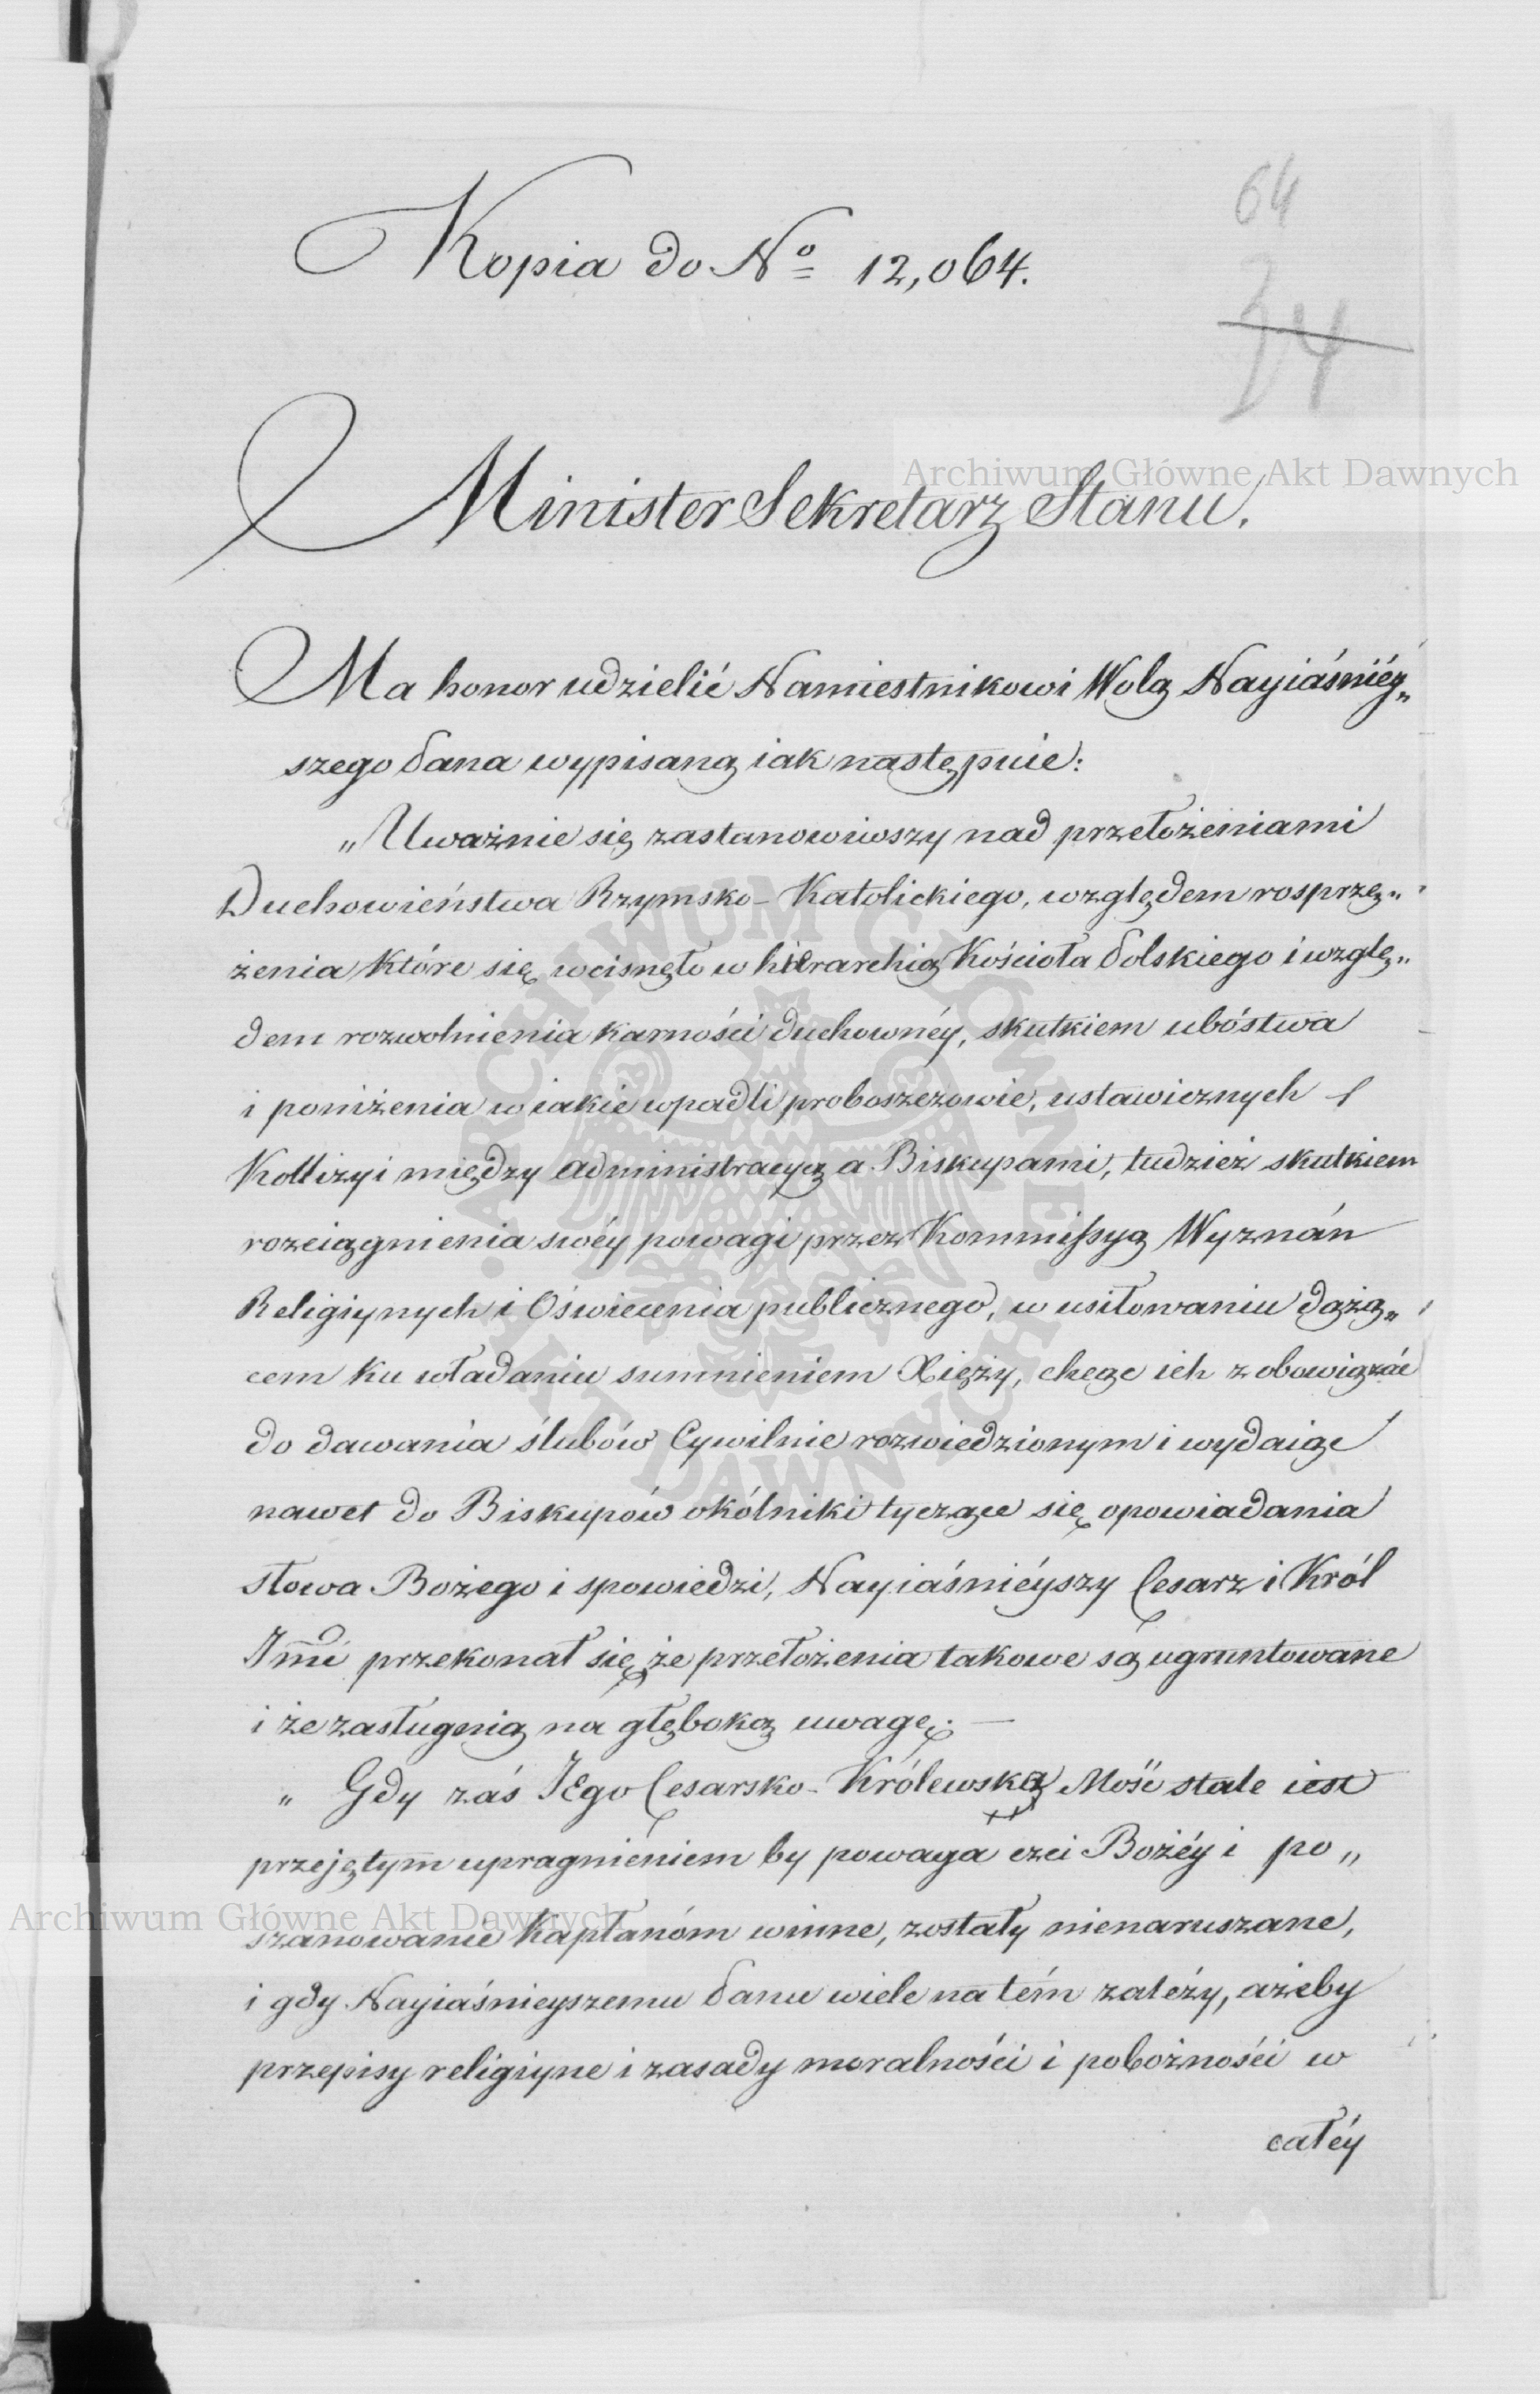 64
Kopia do No 12,064.
24
Archiwum Główne Akt Dawnych
Minister Sekretarz Stanu,
Ma honor udzielić Namiestnikowi Wolą Nayiáśniéy„
szego Pana wypisaną iak następuie:
„Uważnie się zastanowiwszy nad przełożeniami
Duchowieństwa Rzymsko-Katolickiego, względem rosprzę„
żenia które się wcisnęło w hierarchią Kościoła Polskiego i wzglę„
dem rozwolnienia karności duchownéy, skutkiem ubóstwa
i poniżenia w iakie wpadli proboszczowie, ustawicznych
Kollizyi między administracyą a Biskupami, tudzież skutkiem
rozciągnienia swéy powagi przez Kommissyą Wyznán
Religiynych i Oświecenia publicznego, w usiłowaniu dążą„
cem ku władaniu sumnieniem Xięży, chcąc ich zobowiązác
do dawania ślubów Cywilnie rozwiedzionym i wydaiąc
nawet do Biskupów okólniki tyczące się opowiadania
słowa Bożego i spowiedzi, Nayiáśniéyszy Cesarz i Król
Jmć przekonał się że przełożenia takowe są ugruntowane
i że zasługuią na głęboką uwagę. —
„ Gdy zaś JEgo Cesarsko-Królewska Mość stale iest
przejętym upragnieniem by powaga czci Bożéy i po„
Archiwum Główne Akt Dawnych
szanowanie Kapłanóm winne, zostały nienaruszane,
i gdy Nayiaśnieyszemu Panu wiele na tém zależy, ażeby
przepisy religiyne i zasady moralności i pobożności w
całéy
ARCHIWUM GŁÓWNE AKT DAWNYCH